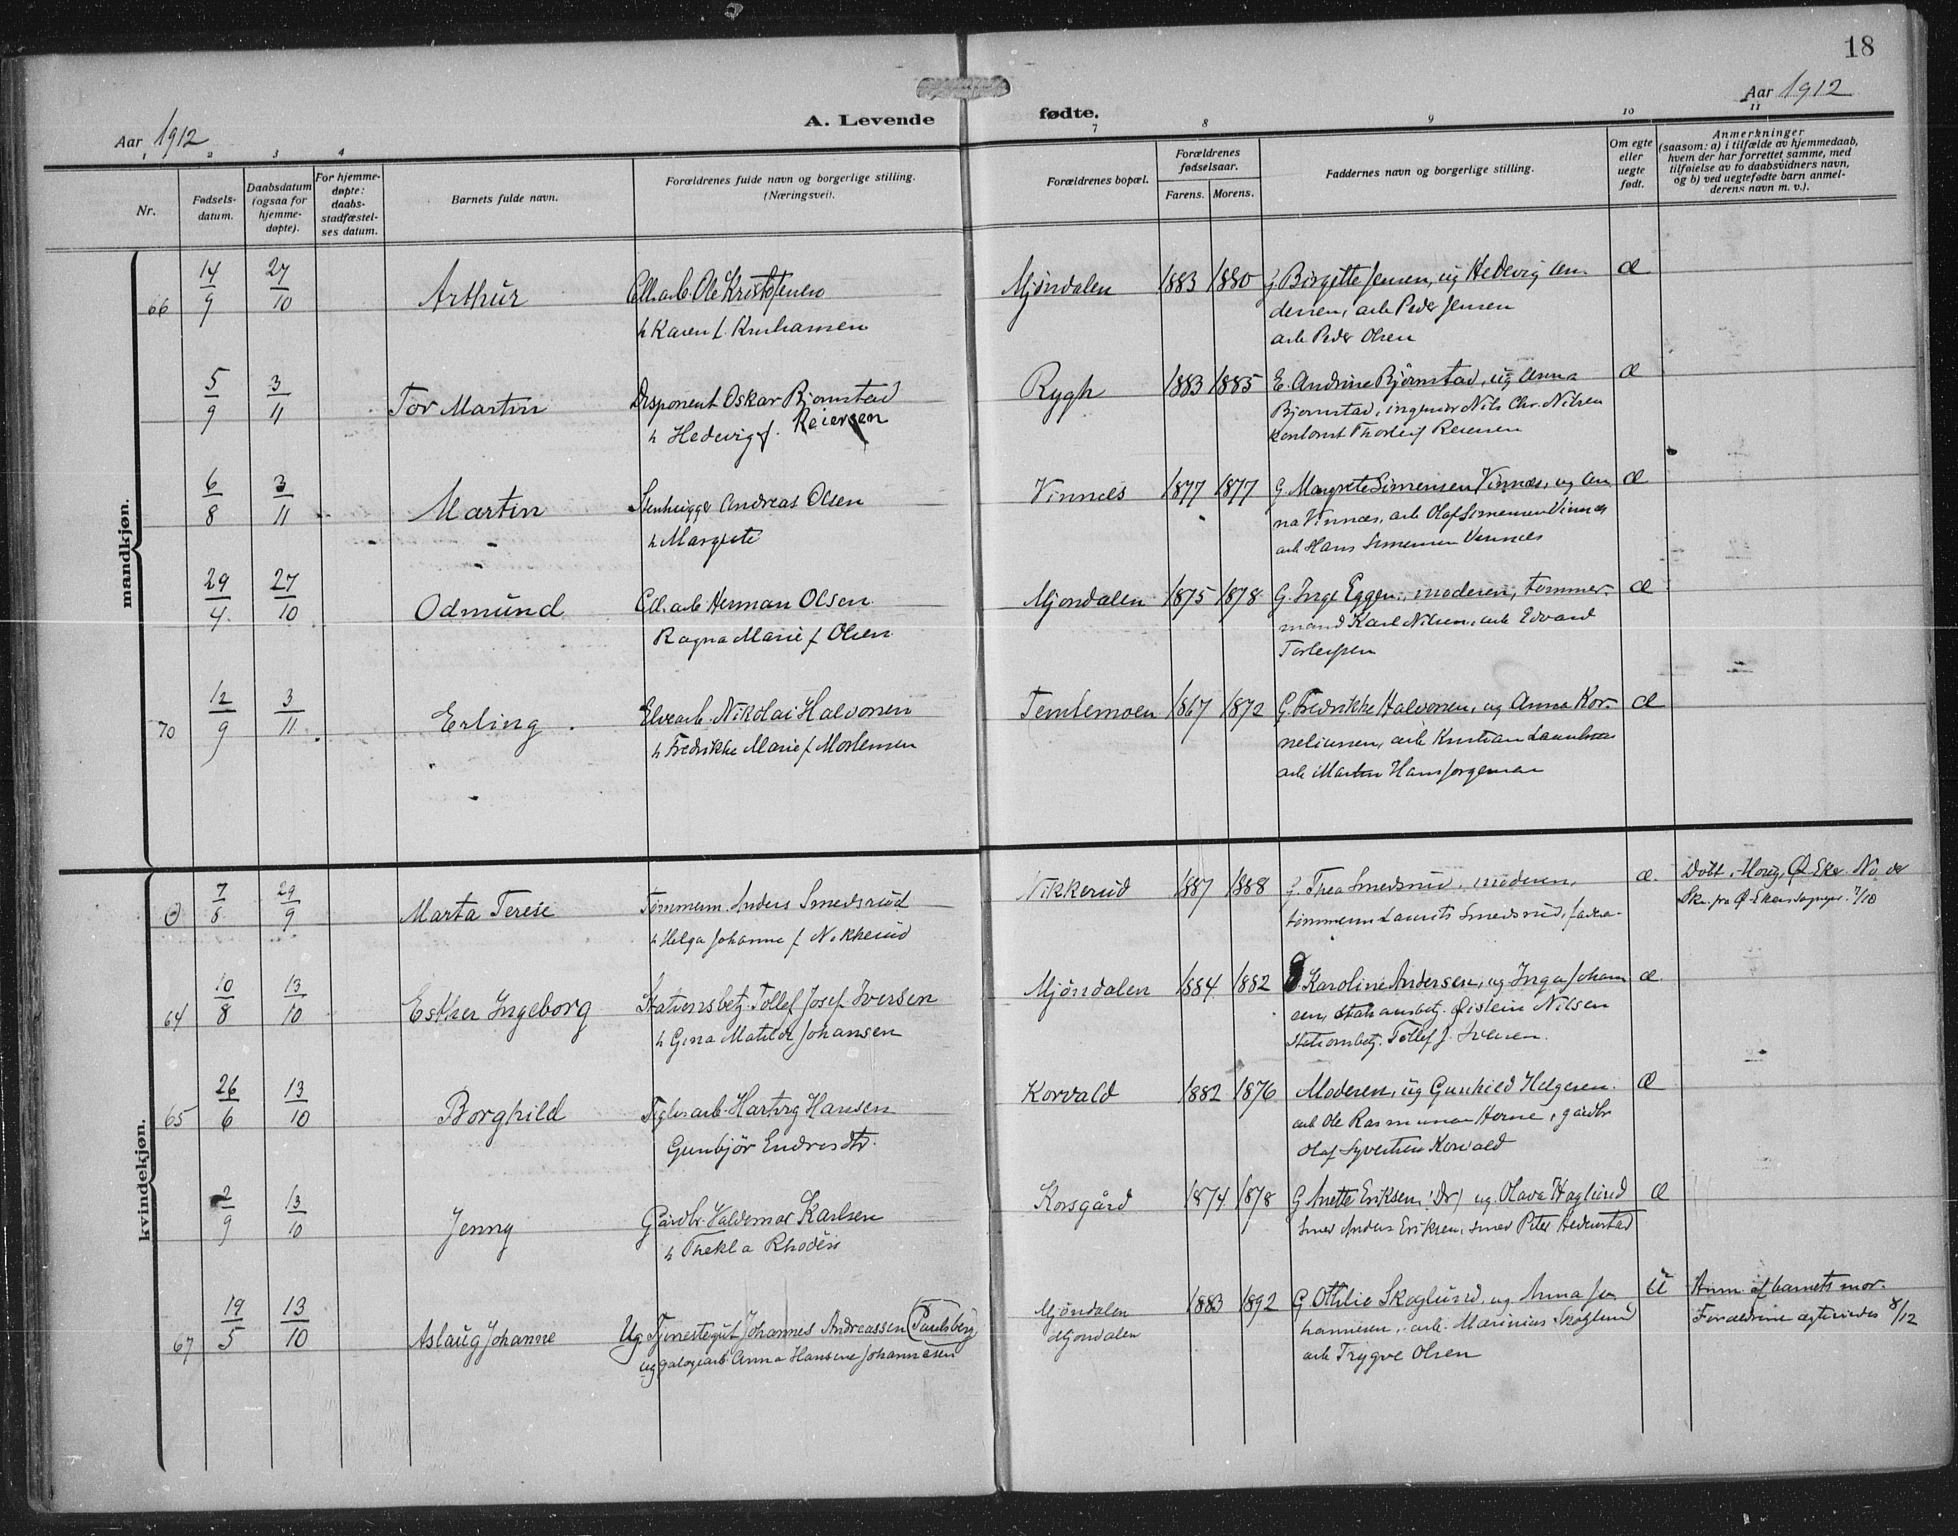 18
Aar 1912
A. Levende
fødte.
Aar 1912
1 2 3 4 7 8 9 10 11
Nr.
Fødsels-
datum.
Daabsdatum
(ogsaa for
hjemme-
døpte).
For hjemme-
døpte:
daabs-
stadfæstel-
ses datum.
Barnets fulde navn.
Forældrenes fulde navn og borgerlige stilling.
(Næringsvei).
Forældrenes bopæl.
Forældrenes
fødselsaar.
Farens. Morens.
Faddernes navn og borgerlige stilling.
Om egte
eller
uegte
født.
Anmerkninger
(saasom: a) i tilfælde av hjemmedaab,
hvem der har forrettet samme, med
tilføielse av to daabsvidners navn,
og b) ved uegtefødte barn anmel-
derens navn m. v.).
mandkjøn.
66 14/9 27/10 Arthur
Cell.arb. Ole Kristofersen
h Karen f.
Mjøndalen 1883 1880
G Birgitte Jensen, ug Hedevig An-
dersen, arb Peder Jensen
arb Peder Olsen
Æ
5/9 3/11 Tor Martin
Disponent Oskar Bjørnstad
h Hedevig f. Reiersen
Rygh 1883 1885
E. Andrine Bjørnstad, ug Anna
Bjørnstad, ingeniør Nils Chr. Nilsen
kontorist Thorleif Reiersen
Æ
6/8 3/11 Martin
Stenhugger Andreas Olsen
h Margrete
Vinnæs 1877 1877
G. Margrete Simensen Vinnæs, ug An
na Vinnæs, arb Olaf Simensen Vinnæs
arb Hans Simensen Vinnæs
Æ
29/4 27/10 Odmund
Cell.arb Herman Olsen
Ragna Marie f Olsen
Mjøndalen 1875 1878
G. Inge Eggen, moderen, tømmer-
mand Karl Nilsen, arb Edvard
Torleifsen
Æ
70 12/9 3/11 Erling
Elvearb. Nikolai Halvorsen
h Fredrikke Marie f Mortensen
Temtemoen 1867 1872
G. Fredrikke Halvorsen, ug Anna Kor-
neliussen, arb Kristian
arb Martin Hans Jørgensen
Æ
kvindekjøn.
63 7/8 29/9 Marta Terese
Tømmerm. Anders Smedsrud
h Helga Johanne f Nikkerud
Nikkerud 1887 1888
G. Thea Smedsrud, moderen,
tømmerm Laurits Smedsrud, faderen
Æ.
Døbt i Haug, Ø Eker No
Ø Eker sogнepr. 7/10
64 10/8 13/10 Esther Ingeborg
Stationsbetj. Tollef Josef Iversen
h Gina Matilde Johansen
Mjøndalen 1884 1882
G. Karoline Andersen, ug Inga Johan
sen, stationsbetj. Øistein Nilsen
Stationsbetj. Tollef J. Iversen.
Æ.
65 26/6 13/10 Borghild
Teglv.arb. Hartvig Hansen
Gunbjør Endresdtr.
Korvald 1882 1876
Moderen, ug Gunhild Helgesen.
arb Ole Rasmussen Horne, gårdbr
Olaf Syvertsen Korvald
Æ
2/9 13/10 Jenny
Gårdbr. Valdemar Karlsen
h Thekla Rhodén
Korsgård 1874 1878
G Anette Eriksen (Dr) ug. Olava Haglund
Smed Anders Eriksen, smed Peter Hedenstad
Æ
67 19/5 13/10 Aslaug Johanne
Ug Tjenestegut Johannes Andreassen (Paulsberg)
ug Anna Hansine Johannesen
Mjøndalen
Mjøndalen
1883 1892
G Othilie Skoglund, ug Anna Jo
hannesen, arb. Marinius Skoglund
arb Trygve Olsen
U
Anm. af barnets mor.
Forældrene ægteviedes 8/12